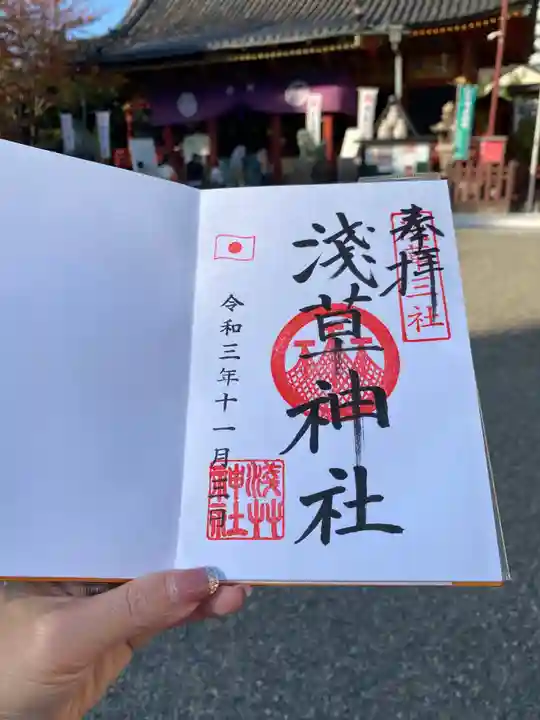 奉拝
三社
淺草神社
令和三年十一月三日
淺草
神社